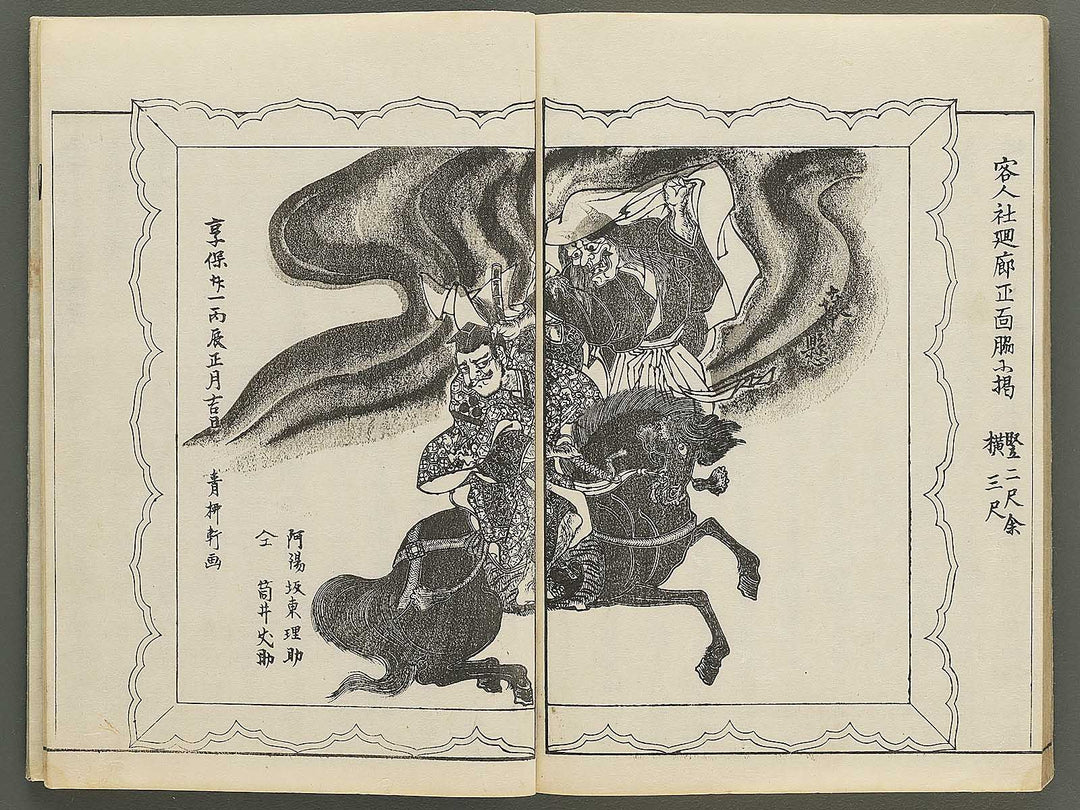 客人社廻廊正面脇ニ掲
竪二尺余
横三尺
奉
懸
阿陽 坂東理助
仝 筒井丈助
享保廿一丙辰正月吉旦 青柳軒画